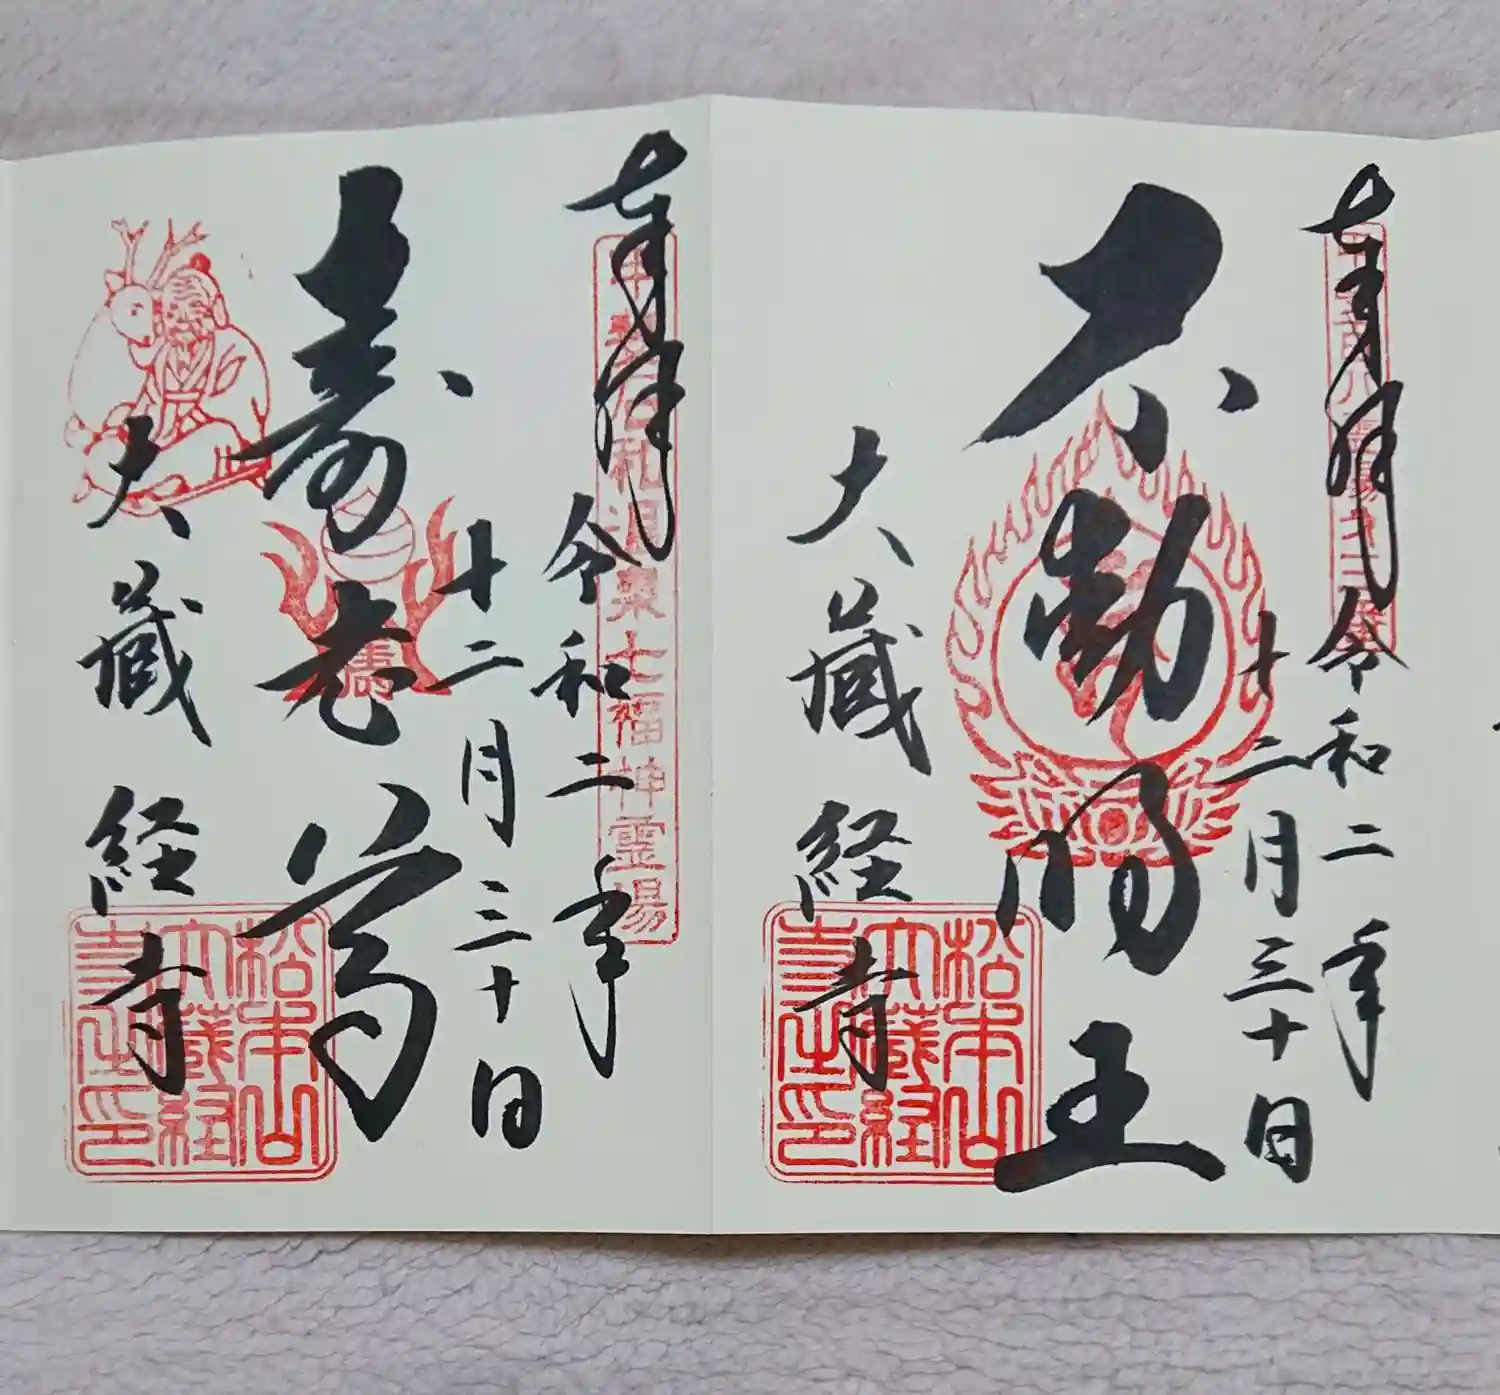 奉拝
令和二年
十二月三十日
不動明王
大蔵経寺
松本山
大蔵経
寺之印
奉拝
甲斐石和温泉七福神霊場
令和二年
十二月三十日
寿老尊
大蔵経寺
松本山
大蔵経
寺之印